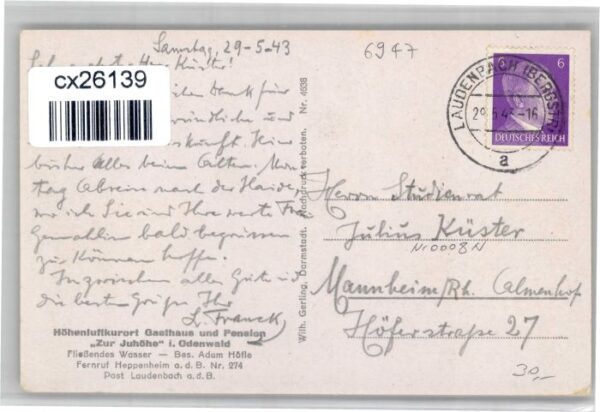 Samstag, 29-5-43
6947
Küster!
cx26139
Dank für
und
Hier
bisher Alles beim Alten. Mon
tag Abreise nach der Haide,
wo ich Sie und Ihre werte Frau
Gemahlin bald begrüssen
zu können hoffe.
Inzwischen alles Gute und
die besten Grüße Ihr
L. Franck
Höhenluftkurort Gasthaus und Pension
„Zur Juhöhe" i. Odenwald
Fließendes Wasser — Bes. Adam Höfle
Fernruf Heppenheim a.d.B. Nr. 274
Post Laudenbach a.d.B.
Wilh. Gerling, Darmstadt. Nachdruck verboten. Nr. 4638
6
6
DEUTSCHES REICH
LAUDENBACH (BERGSTR)
-16
a
Herrn Studienrat
Julius Küster
N10008N
Mannheim/Rh. Almenhof
Höferstraße 27
30,-